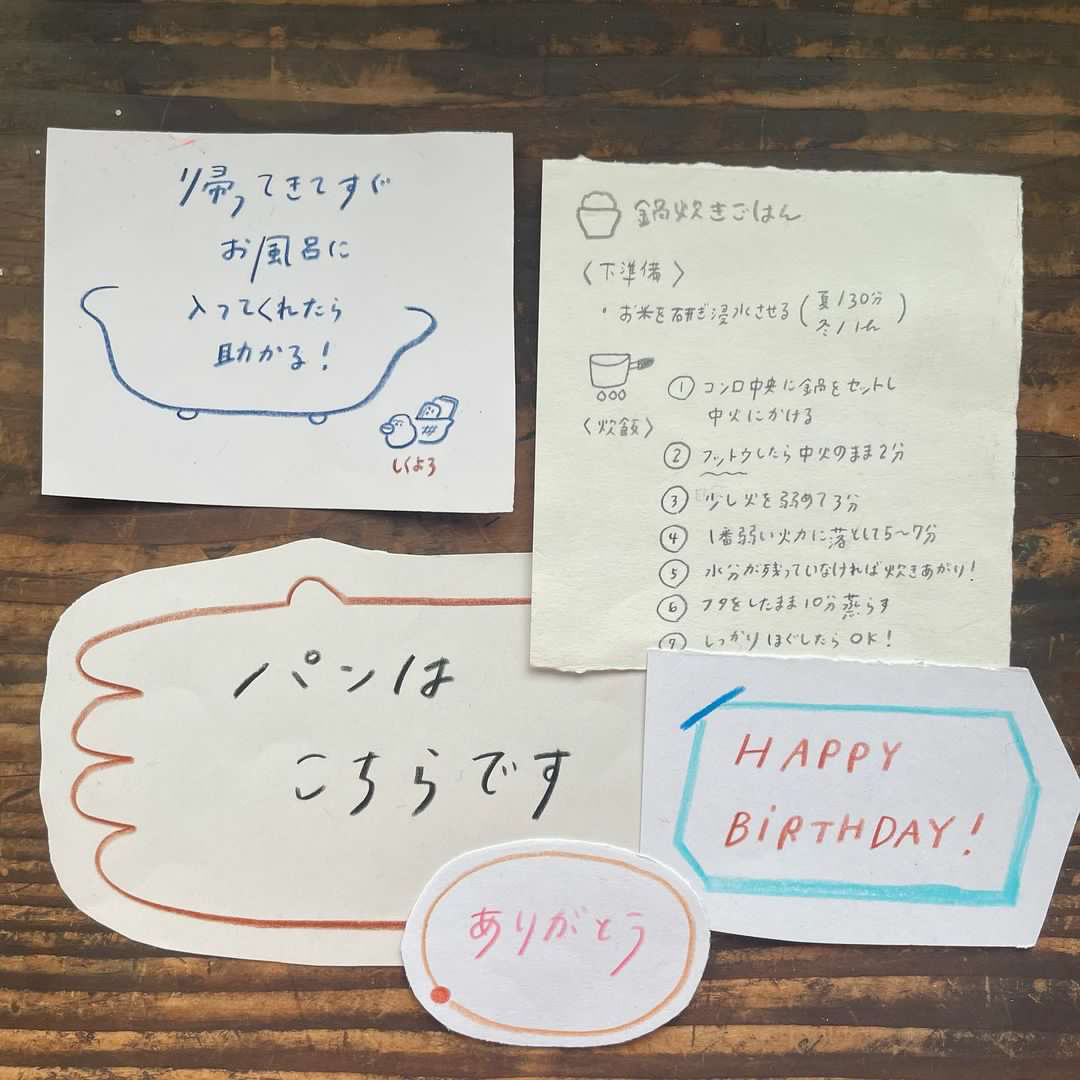 帰ってきてすぐ
お風呂に
入ってくれたら
助かる!
しくよろ
鍋炊きごはん
〈下準備〉
・お米を研ぎ浸水させる(夏/30分
冬/1h)
〈炊飯〉
① コンロ中央に鍋をセットし
中火にかける
② フットウしたら中火のまま2分
③ 少し火を弱めて3分
④ 1番弱い火力に落として5〜7分
⑤ 水分が残っていなければ炊きあがり!
⑥ フタをしたまま10分蒸らす
⑦ しっかりほぐしたらOK!
パンは
こちらです
HAPPY
BiRTHDAY!
ありがとう